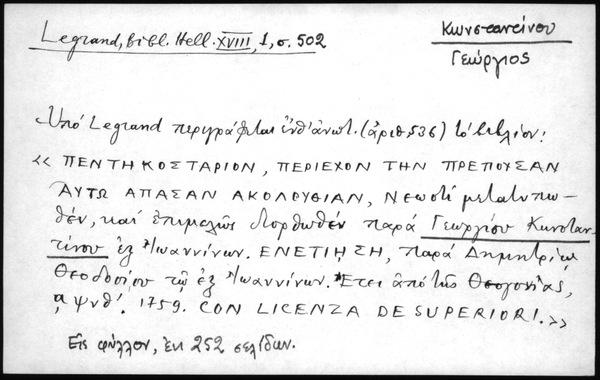 Legrand, Bibl. Hell. XVIII, 1, σ. 502
Κωνσταντίνου
Γεώργιος
Ὑπό Legrand περιγράφεται ἔνθ' ἀνωτ. (ἀριθ. 536) τό βιβλίον:
« ΠΕΝΤΗΚΟΣΤΑΡΙΟΝ, ΠΕΡΙΕΧΟΝ ΤΗΝ ΠΡΕΠΟΥΣΑΝ
ΑΥΤΩ ΑΠΑΣΑΝ ΑΚΟΛΟΥΘΙΑΝ, Νεωστί μετατυπω-
θέν, καί ἐπιμελῶς διορθωθέν παρά Γεωργίου Κωνσταν-
τίνου ἐξ Ἰωαννίνων. ΕΝΕΤΙΗΣΗ, παρά Δημητρίῳ
Θεοδοσίου τῷ ἐξ Ἰωαννίνων. Ἔτει ἀπό τῆς Θεογονίας,
α ψνθ'. 1759. CON LICENZA DE SUPERIORI. »
Εἰς φύλλον, ἐκ 252 σελίδων.